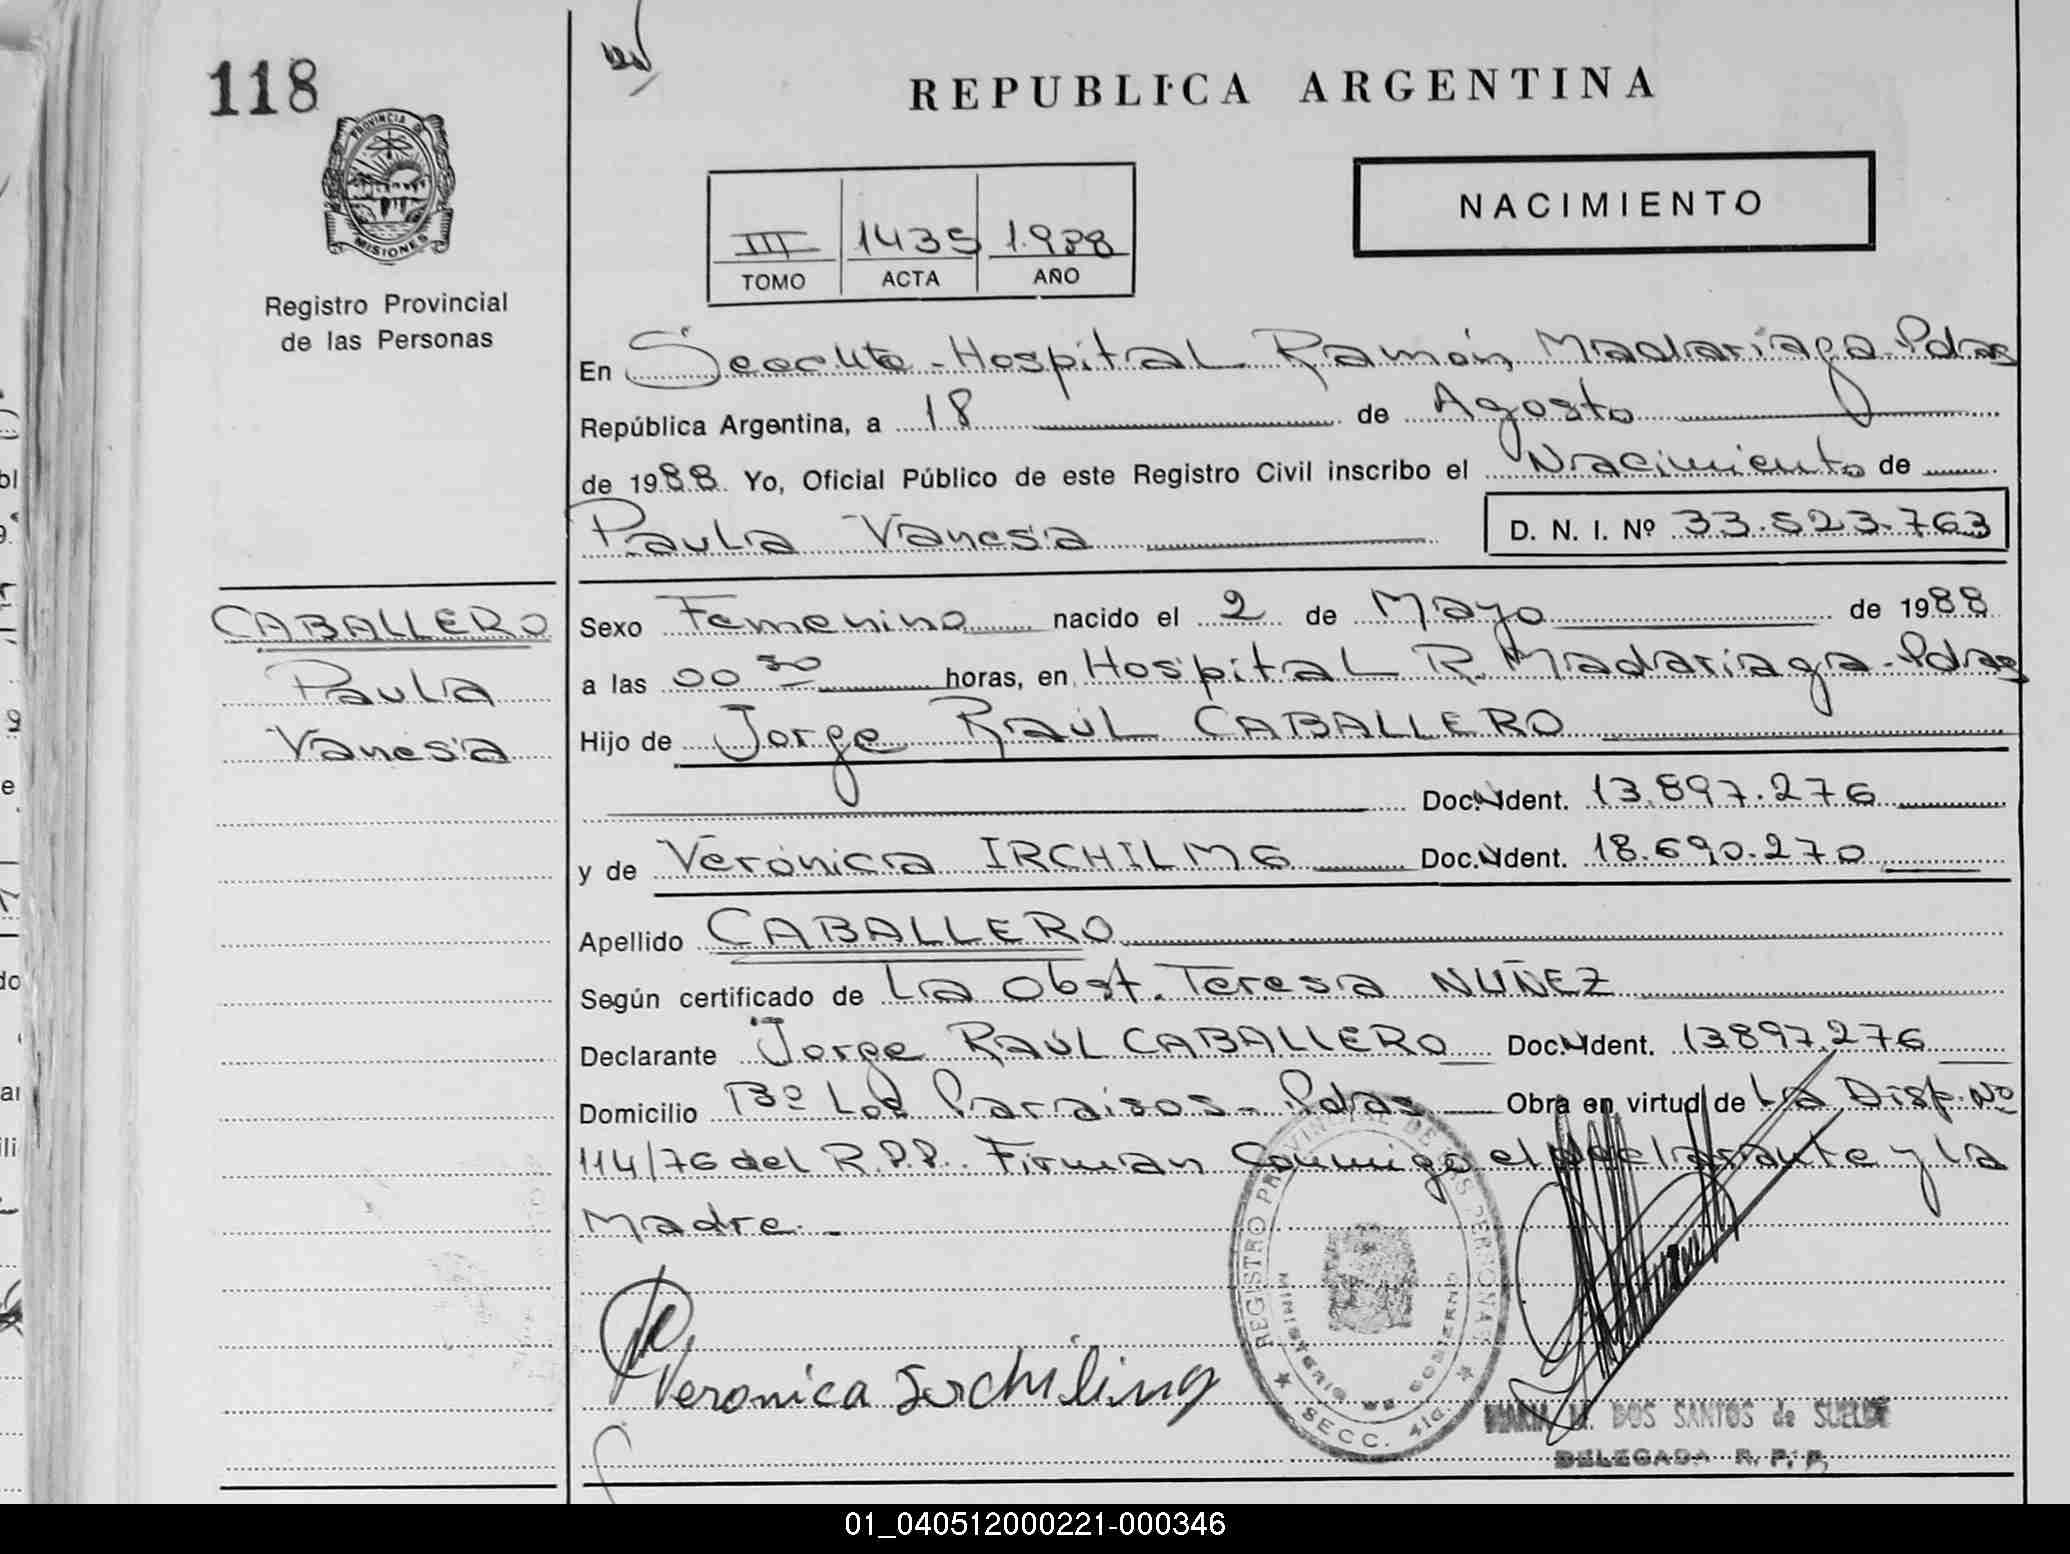 118
PROVINCIA DE
MISIONES
Registro Provincial
de las Personas
REPUBLICA ARGENTINA
NACIMIENTO
III 1435 1.988
TOMO ACTA AÑO
En Seccc. Hospital Ramón Madariaga - Pdas
República Argentina, a 18 de Agosto
de 1988 Yo, Oficial Público de este Registro Civil inscribo el Nacimiento de
Paula Vanesa D. N. I. Nº 33.523.763
CABALLERO
Paula
Vanesa
Sexo Femenino nacido el 2 de Mayo de 1988
a las 00 30 horas, en Hospital R. Madariaga - Pdas
Hijo de Jorge RAÚL CABALLERO
Doc. Ident. 13.897.276
y de Verónica IRCHILMG Doc. Ident. 18.690.270
Apellido CABALLERO
Según certificado de La Obst. Teresa NUÑEZ
Declarante Jorge RAUL CABALLERO Doc. Ident. 13897.276
Domicilio Bº Los Paraisos - Pdas Obra en virtud de La Disp. Nº
114/76 del R.P.P. Firman Conmigo el declarante y la
Madre. -
Veronica Irchiling
REGISTRO PROVINCIAL DE LAS PERSONAS
MINISTERIO DE GOBIERNO
SECC. 4ta.
DOS SANTOS de SUELDO
DELEGADA R. P. P.
01_040512000221-000346